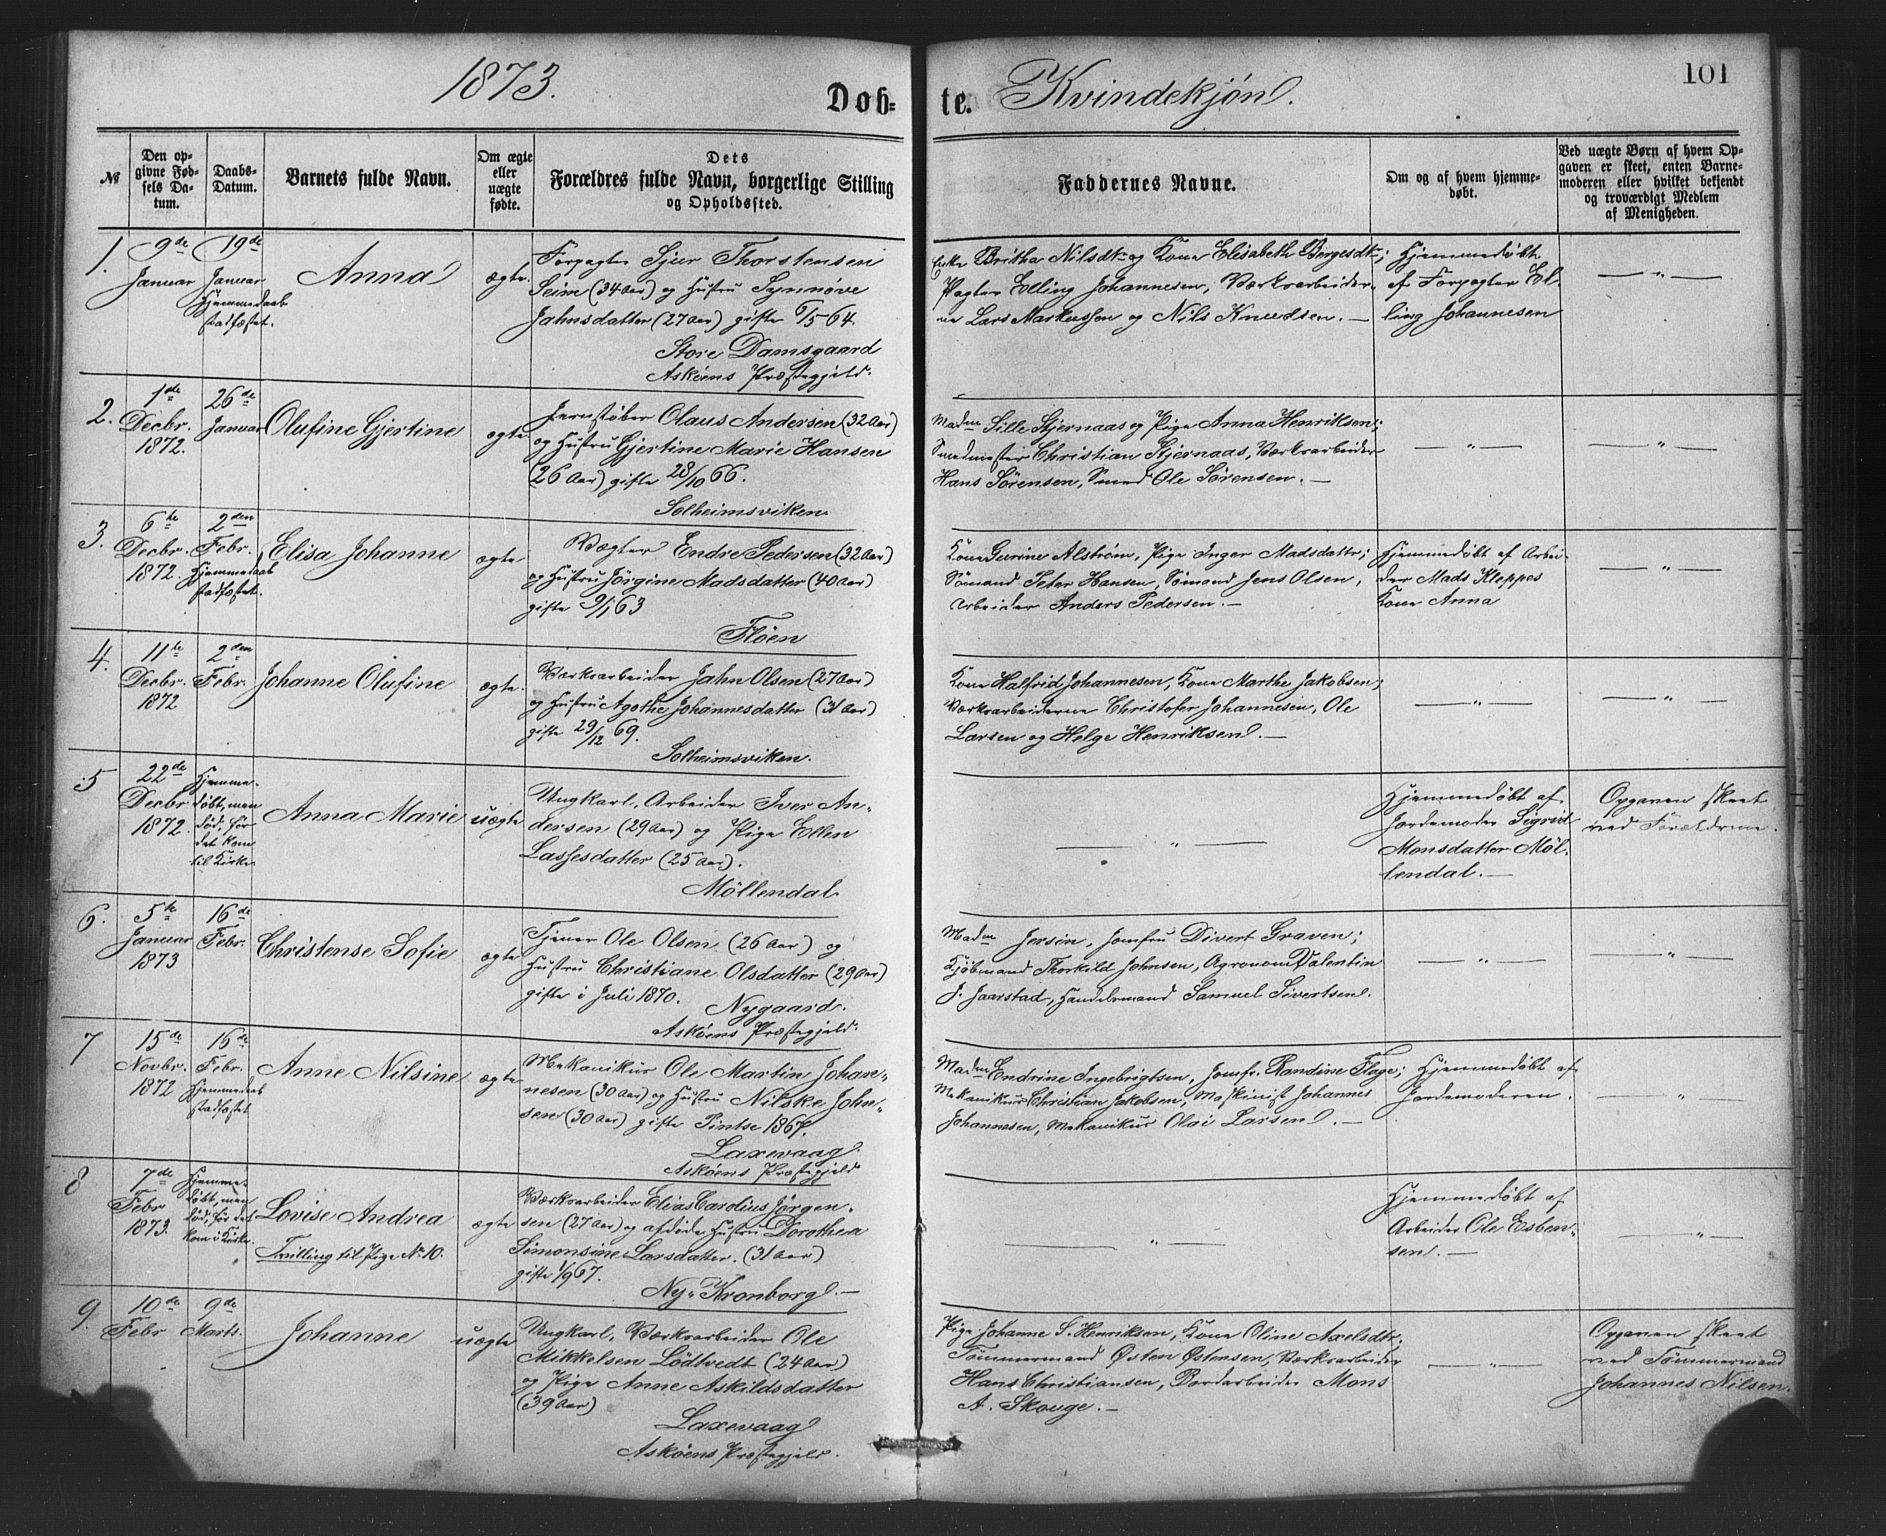 1873.
Døb-
te. Kvindekjøn.
101
№
Den opgivne Fødsels Datum.
Daabs-Datum.
Barnets fulde Navn.
Om ægte eller uægte fødte.
Dets Forældres fulde Navn, borgerlige Stilling og Opholdssted.
Faddernes Navne.
Om og af hvem hjemmedøbt.
Ved uægte Børn af hvem Opgaven er skeet, enten Barnemoderen eller hvilket bekjendt og troværdigt Medlem af Menigheden.
1.
9de Januar
19de Januar
Hjemmedaab
stadfæstet.
Anna
ægte.
Forpagter Sjur Thorstensen
Seim (34 Aar) og Hustru Synnøve
Jahnsdatter (27 Aar) gifte 6/5-64.
Store Damsgaard
Askøens Præstegjeld.
Enke Britha Nilsdtr og Kone Elisabeth Børgesdtr;
Pagter Elling Johannesen, Værksarbeider-
ne Lars Markussen og Nils Knudsen. —
Hjemmedøbt
af Forpagter El-
ling Johannesen
— " —
2.
1de
Decbr.
1872.
26de
Januar
Olufine Gjertine
ægte
Jernstøber Olaus Andersen (32 Aar)
og Hustru Gjertine Marie Hansen
(26 Aar) gifte 28/10 66.
Solheimsviken
Madm Sille Stjernaas og Pige Anna Henriksen;
Smedmester Christian Stjernaas, Værksarbeider
Hans Sørensen, Smed Ole Sørensen. —
— " —
— " —
3.
6te
Decbr.
1872.
2den
Febr.
Hjemmedaab
stadfæstet.
Elisa Johanne
ægte
Vægter Endre Pedersen (32 Aar)
og Hustru Jørgine Madsdatter (40 Aar)
gifte 9/1 63
Fløen
Kone Gurine Alstrøm, Pige Inger Madsdattr;
Sømand Peter Hansen, Sømand Jens Olsen,
Arbeider Anders Pedersen. —
Hjemmedøbt af Arbei-
der Mads Kleppes
Kone Anna
— " —
4.
11te
Decbr.
1872
2den
Febr.
Johanne Olufine
ægte.
Værksarbeider Jahn Olsen (27 Aar)
og Hustru Agothe Johannesdatter (31 Aar)
gifte 29/12 69.
Solheimsviken.
Kone Halfrid Johannesen, Kone Marthe Jakobsen;
Værksarbeiderne Christofer Johannesen, Ole
Larsen og Helge Henriksen. —
— " —
— " —
5
22de
Decbr
1872.
Hjemme-
døbt, men
død, før
det kom
til Kirke
Anna Marie
uægte
Ungkarl, Arbeider Iver An-
dersen (29 Aar) og Pige Ellen
Lassesdatter (25 Aar).
Möllendal
— " —
Hjemmedøbt af
Jordemoder Sigrid
Monsdatter Möl-
lendal. —
Opgaven skeet
ved Forældrene.
6.
5te
Januar
1873
16de
Febr.
Christense Sofie
ægte
Tjener Ole Olsen (26 Aar) og
Hustru Christiane Olsdatter (29 Aar)
gifte i Juli 1870.
Nygaard.
Askøens Præstegjeld.
Madm Jersin, Jomfru Divert Graven;
Kjøbmand Thorkild Johnsen, Agronom Valentin
J. Jaarstad, Handelsmand Samuel Sivertsen.
— " —
— " —
7
15de
Novbr.
1872
16de
Febr.
Hjemmedaab
stadfæstet
Anne Nilsine
ægte
Mekanikus Ole Martin Johan-
nesen (30 Aar) og Hustru Nilske John-
sen (30 Aar) gifte Pintse 1867.
Laxevaag
Askøens Præstegjeld
Madm Endrine Ingebrigtsen, Jomfr. Randine Flage;
Mekanikus Christian Jakobsen, Maskinist Johannes
Johannesen, Mekanikus Olai Larsen. —
Hjemmedøbt af
Jordemoderen.
— " —
8
7de
Febr
1873.
Hjemme-
døbt, men
død, før det
kom i Kirke
Lovise Andrea
Tvilling til Pige No 10.
ægte
Værksarbeider Elias Carolius Jørgen-
sen (27 Aar) og afdøde Hustru Dorothea
Simonsine Larsdatter. (31 Aar)
gifte 1/9 67.
Ny-Kronborg. —
— " —
Hjemmedøbt af
Arbeider Ole Esben-
sen. —
— " —
9.
10de
Febr
9de
Marts.
Johanne
uægte
Ungkarl, Værksarbeider Ole
Mikkelsen Lödtvedt (24 Aar)
og Pige Anne Askildsdatter
(39 Aar)
Laxevaag
Askøens Præstegjeld.
Pige Johanne S. Henriksen, Kone Oline Axelsdtr,
Tømmermand Østen Østensen, Værksarbeider
Hans Christiansen, Bordarbeider Mons
A. Skouge. —
— " —
Opgaven skeet
ved Tømmermand
Johannes Nilsen.